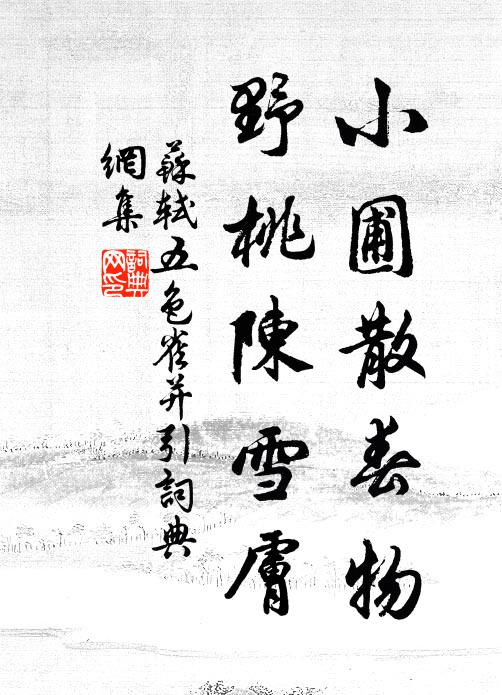 小圃散春物
野桃陳雪膚
蘇軾五色雀并引詞典
網集
詞典
网印